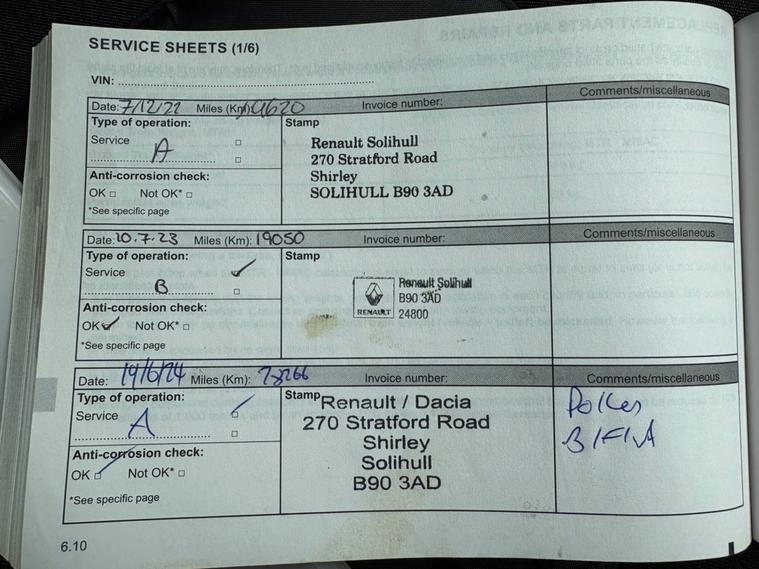 SERVICE SHEETS (1/6)
VIN:
Date: 7/12/22 Miles (Km): Invoice number: Comments/miscellaneous
Type of operation: Stamp
Service
A
Renault Solihull
270 Stratford Road
Shirley
SOLIHULL B90 3AD
Anti-corrosion check:
OK □ Not OK* □
*See specific page
Date: 10.7.23 Miles (Km): 19050 Invoice number: Comments/miscellaneous
Type of operation: Stamp
Service ✓
B
Renault Solihull
B90 3AD
24800
RENAULT
Anti-corrosion check:
OK ✓ Not OK* □
*See specific page
Date: 14/6/24 Miles (Km): Invoice number: Comments/miscellaneous
Type of operation: Stamp
Service ✓
A
Renault / Dacia
270 Stratford Road
Shirley
Solihull
B90 3AD
Pollen
B/F/A
Anti-corrosion check:
OK ✓ Not OK* □
*See specific page
6.10